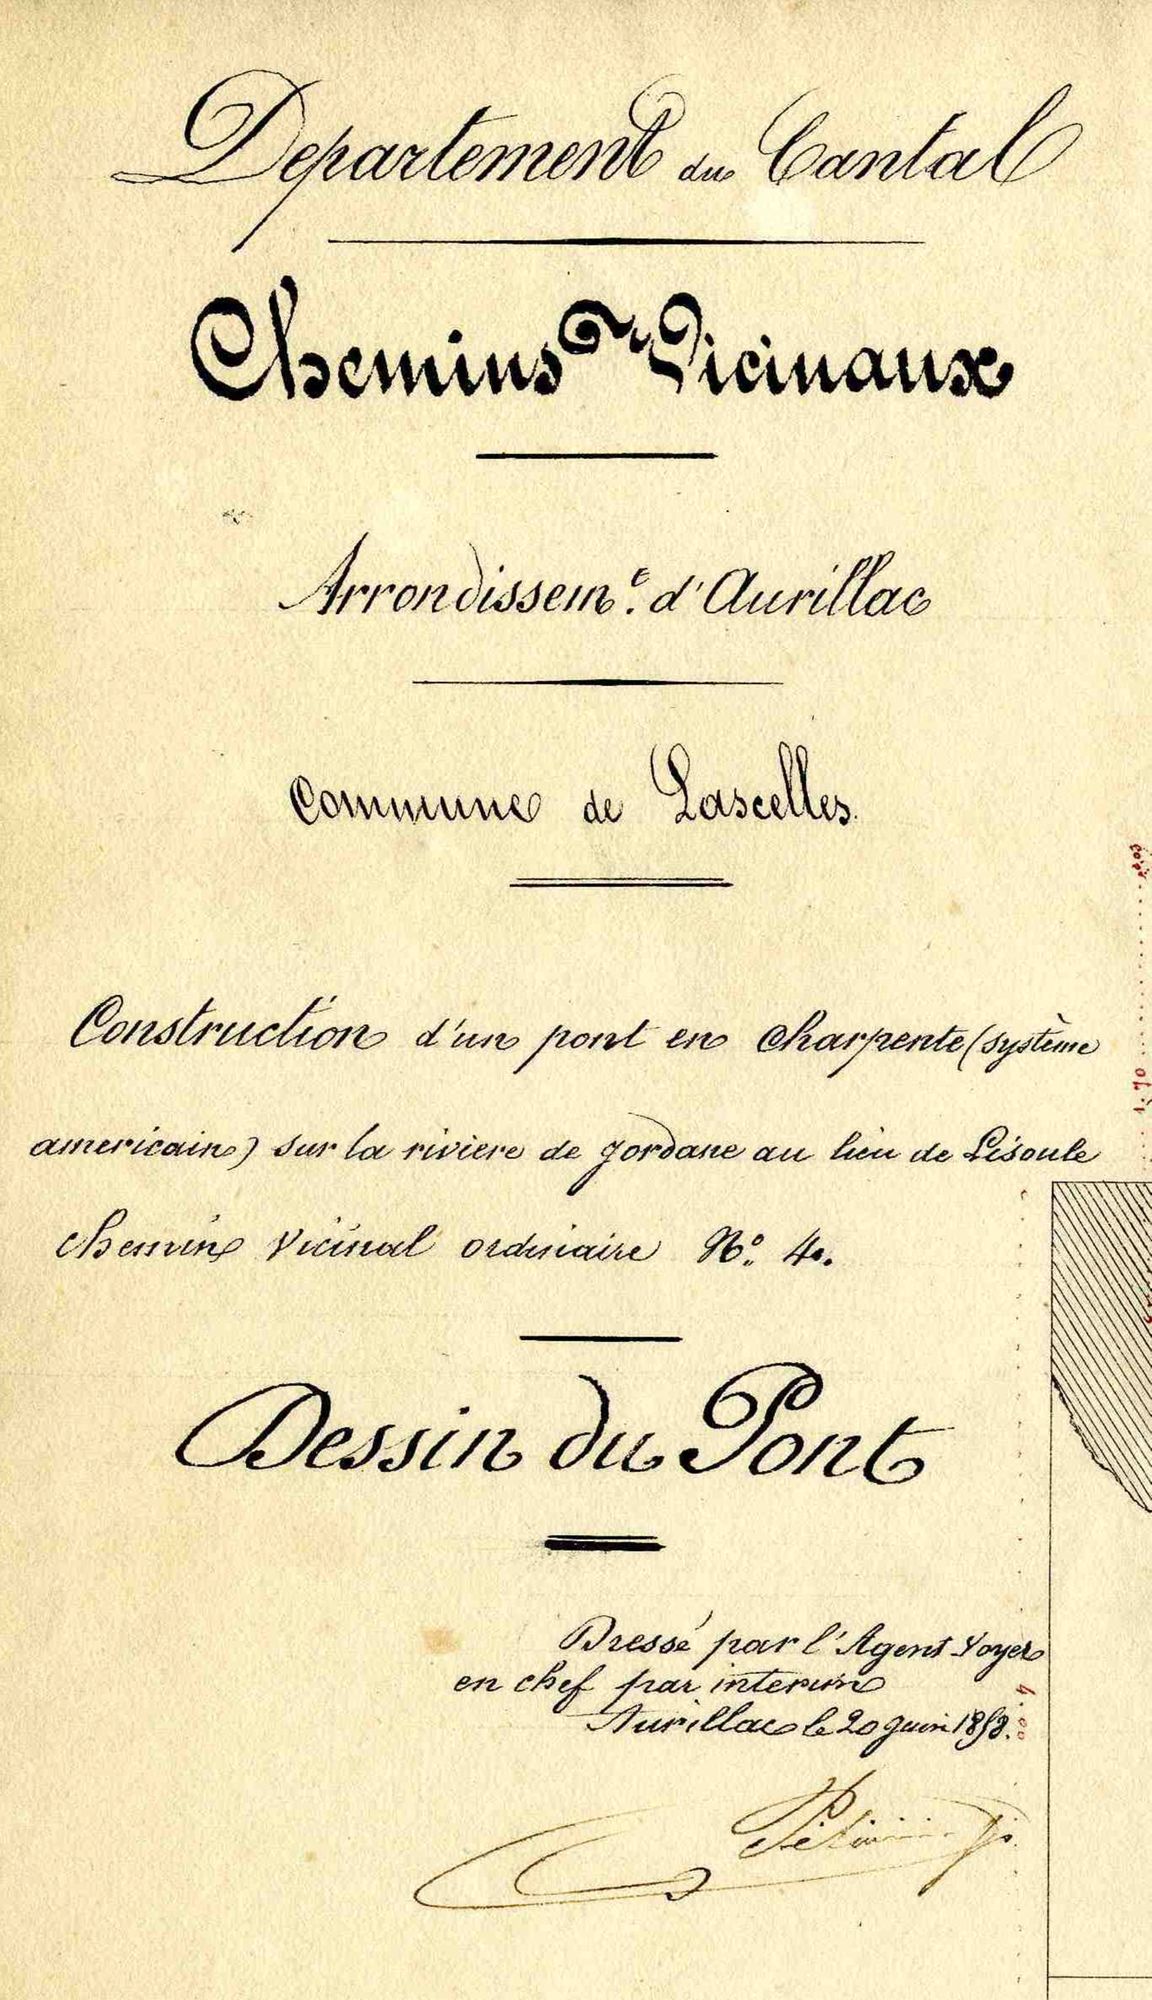 Departement du Cantal
Chemins Vicinaux
Arrondissem.t d'Aurillac
Commune de Lascelles.
Construction d'un pont en charpente (système
americain) sur la riviere de Jordane au lieu de Lisoule
chemin vicinal ordinaire N.o 4.
Dessin du Pont
Dressé par l'Agent Voyer
en chef par interim
Aurillac le 20 juin 1858.
4.00
1.70